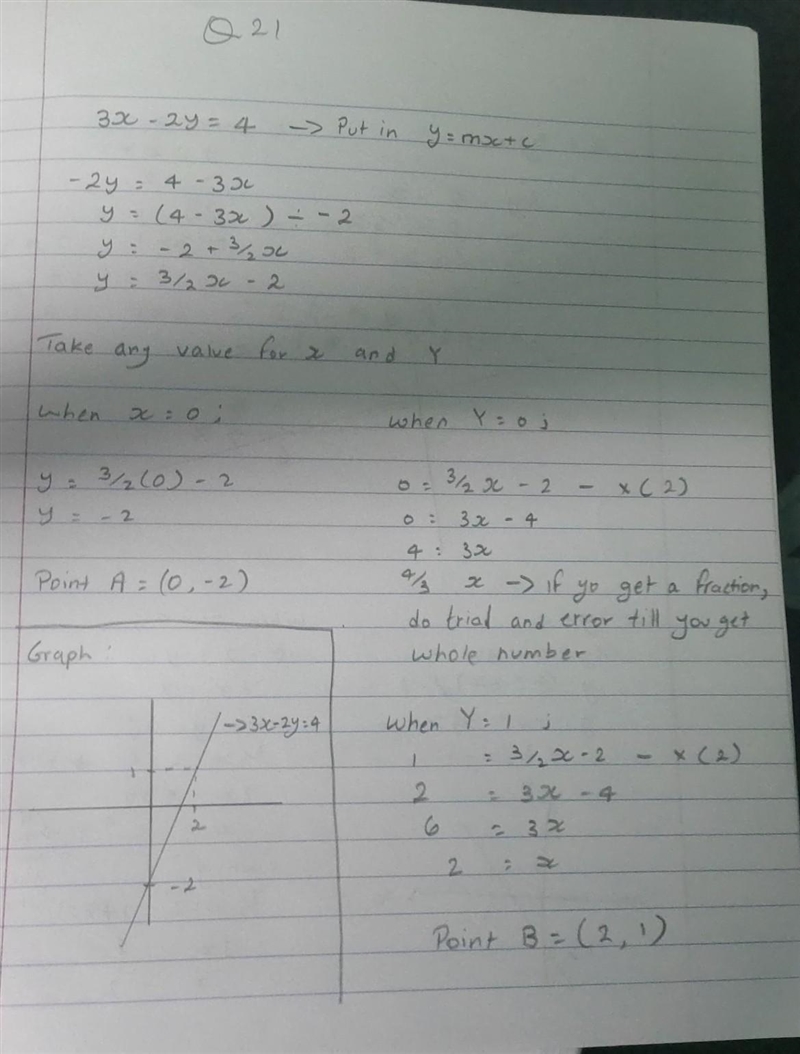 Q 21
3x - 2y = 4 -> Put in y=mx+c
-2y = 4 - 3x
y = (4 - 3x) ÷ -2
y = -2 + 3/2 x
y = 3/2 x - 2
Take any value for x and Y
When x = 0 ;
y = 3/2 (0) - 2
y = -2
Point A = (0, -2)
when Y = 0 ;
0 = 3/2 x - 2 - x (2)
0 = 3x - 4
4 = 3x
4/3 x -> if yo get a fraction,
do trial and error till you get
whole number
When Y = 1 ;
1 = 3/2 x - 2 - x (2)
2 = 3x - 4
6 = 3x
2 = x
Point B = (2, 1)
Graph :
-> 3x-2y=4
1
2
-2